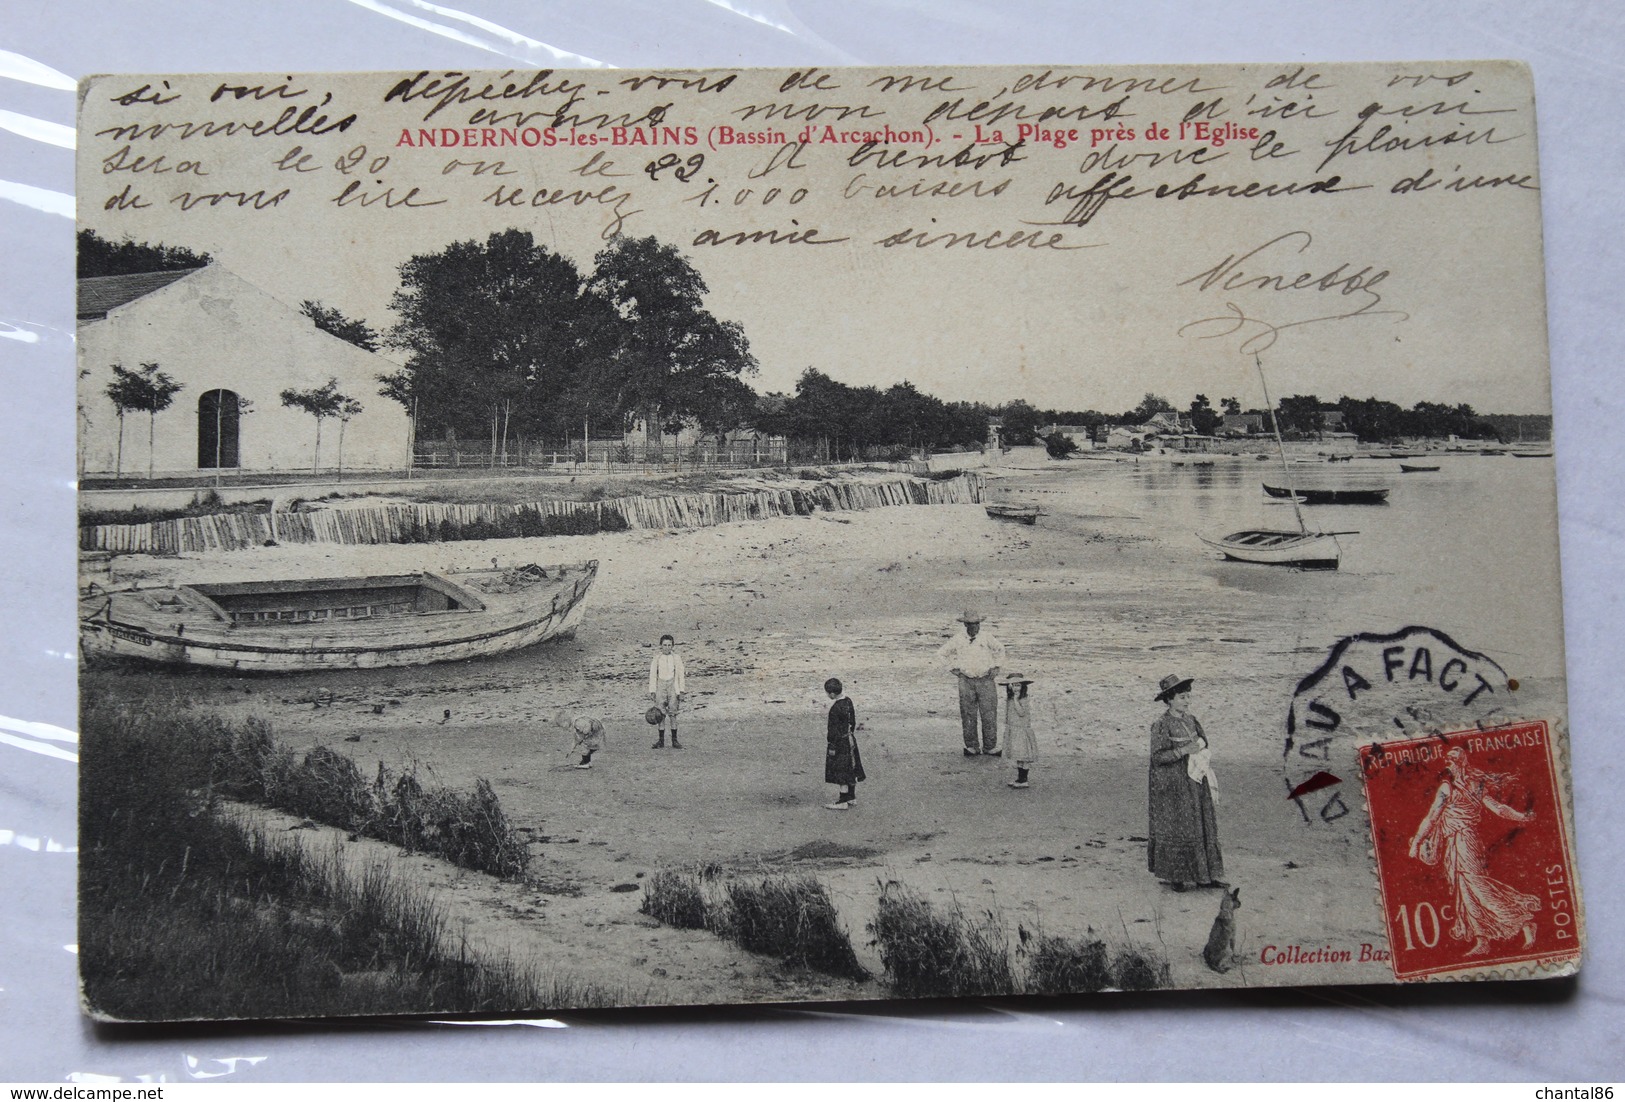 si oui, dépéchez-vous de me donner de vos
nouvelles avant mon départ d'ici qui
ANDERNOS-les-BAINS (Bassin d'Arcachon). - La Plage près de l'Eglise
sera le 20 ou le 22. A bientot donc le plaisir
de vous lire recevez 1.000 baisers affectueux d'une
amie sincère
AU A FACT
REPUBLIQUE FRANÇAISE
10c
POSTES
Collection Baz
chantal86